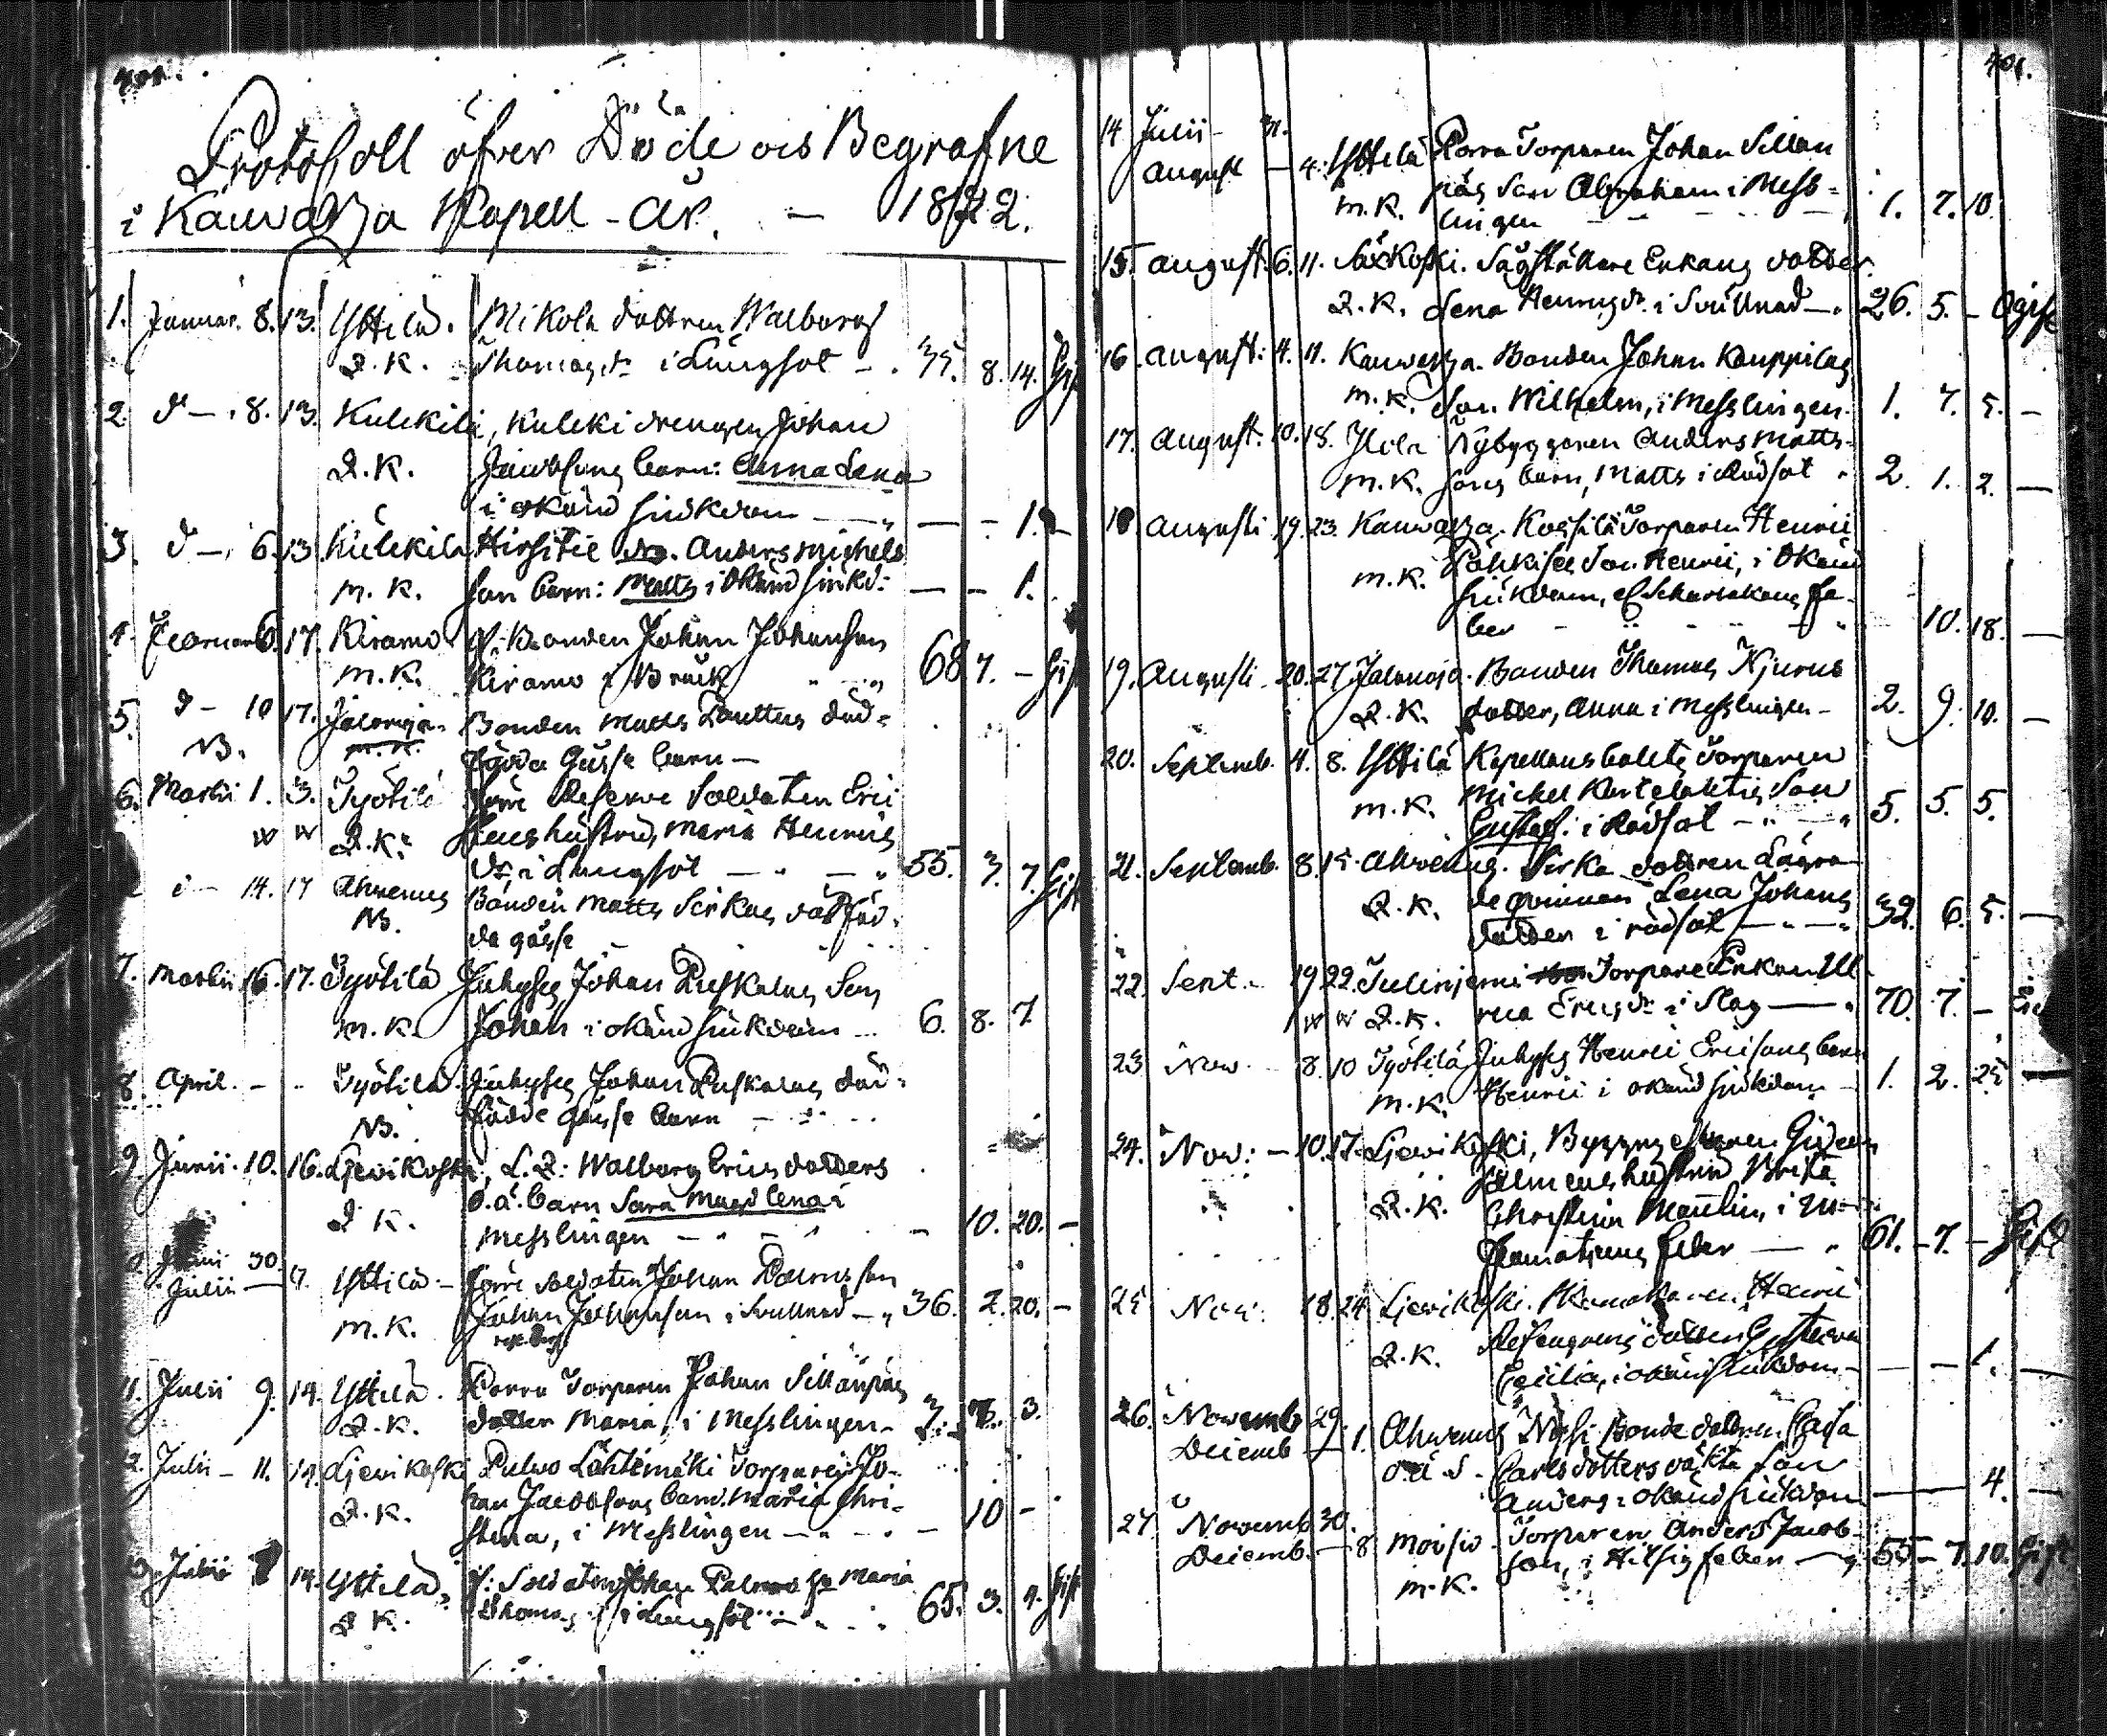 401.
Protokoll öfver Döde och Begrafne
i Kauvatza Kapell - År. - 1822.
1. Januar. 8. 13. Yttilä. Mikola dottren Walborg
Q. K. Thomasdr i Lungsot - . 35. 8. 14. Gift
2. d - . 8. 13. Kulekila, Kuleki drengen Johan
Q. K. Jacobsons barn: Anna Lena
i okänd siukdom - - 1.
3. d - . 6. 13. Kulekila Anders Michels
m. K. son barn: Matts i okänd siukd: - - 1.
4. Februar 6. 17. Kiramo f. Bonden Johan Johanson
m. K. Kiramo i Bråck 68 7. - Gift
5. d - 10 17. Jalonoja. Bonden Matts död=
NB. m. K. födda Gosse barn -
6. Martii 1. 3. Työtilä förre Reserve Soldaten Eric
w w Q. K. hustru, Maria Henrics
dr. i Lungsot - " - " 55. 3. 7. Gift
d - 14. 17 Ahvenus Bonden Matts Sirkas dödföd.
NB. de gosse -
7. Martii 16. 17. Työtilä Inhyses Johan Puskalas Son
m. K. Johan i okänd siukdom - 6. 8. 7.
8 April. - - Työtilä. Inhyses Johan Puskalas död=
NB. födde gosse barn -
9. Junii. 10. 16. Ljevikoski, L. Q: Walborg Erics dotters
Q K. o. ä. barn Sara Magdlena i
Messlingen - " - - 10. 20. -
Junii 30.
Julii - 7. Yttilä - förre Soldaten Johan Palmus son
m. K. Johan Johansson i Svullnad - " 36. 2. 20. -
11. Julii 9. 14. Yttilä. Porra Torparen Johan Sillanpääs
Q. K. dotter Maria, i Messlingen - 3. 3.
12. Julii - 11. 14. Ljevikoski Pulvo Lähtemäki Torparen Jo-
Q. K. han Jacobsons barn. Maria Chri-
stina, i Messlingen - - . - 10 -
Julii 14. Yttilä, f: Soldaten Johan Palmus Maria
Q K. Thomas i Lungsot - . . 65. 3. 4. Gift
401.
14 Julii - 31.
August - 4. Yttilä Porra Torparen Johan Sillan
m. K. pääs Son Abraham i Mess-
lingen - - 1. 7. 10.
15. August. 6. 11. Sääkoski. Dotter.
Q. K. Lena Henricsdr. i Svullnad - . 26. 5. - Ogift
16. August: 4. 11. Kauvatza. Bonden Johan Kauppilas
m. K. Son. Wilhelm, i Messlingen. 1. 7. 5. -
17. August: 10. 18. Nybyggaren Anders Matts-
m. K. sons barn, Matts i Rödsot " 2. 1. 2. -
18 Augusti 19. 23. Kauvatza. Torparen Henric
m. K. Son Henric, i okänd
siukdom, el Scharlakans fe-
ber - - - " 10. 18. -
19. Augusti. 20. 27. Jalonoja. Bonden Thomas Kjurus
Q. K. dotter, Anna i Messlingen - 2. 9. 10. -
20. Septemb. 4. 8. Yttilä Kapellansbolets Torparen
m. K. Michel Son
Gustaf. i Rödsot - " - " 5. 5. 5.
21. Septemb. 8. 15. Ahvenus. Sirka dottren Lägra-
Q. K. de qvinnan Lena Johans
dotter i rödsot - " - " 32. 6. 5. -
22. Sept. - 19 22. Torpare
w w Q. K. Ericsdr. i Slag - " 70. 7. -
23. Nov. 8. 10 Työtilä Inhyses Henric Ericsons barn
m. K. Henric i okänd siukdom - 1. 2. 25 -
24. Nov: - 10. 17. Ljevikoski, Byggmästaren
Q. K. hustru Brita
Christina i
feber - " 61. - 7. - Gift
25 Nov. 18. 24. Ljevikoski. Skomakaren Henric
Q. K. dotter Gustava
Cecilia, i okänd siukdom - - - 1.
26. Novemb 29.
Decemb - 1. Ahvenus Bonde dottren Caisa
o. ä. S. Carls dotters oäkta Son
Anders i okänd siukdom - 4. -
27 Novemb 30.
Decemb. - 8 Moisio. Torparen Anders Jacob-
m. K. son, i Hitsig feber - " 55 - 7. 10. Gift